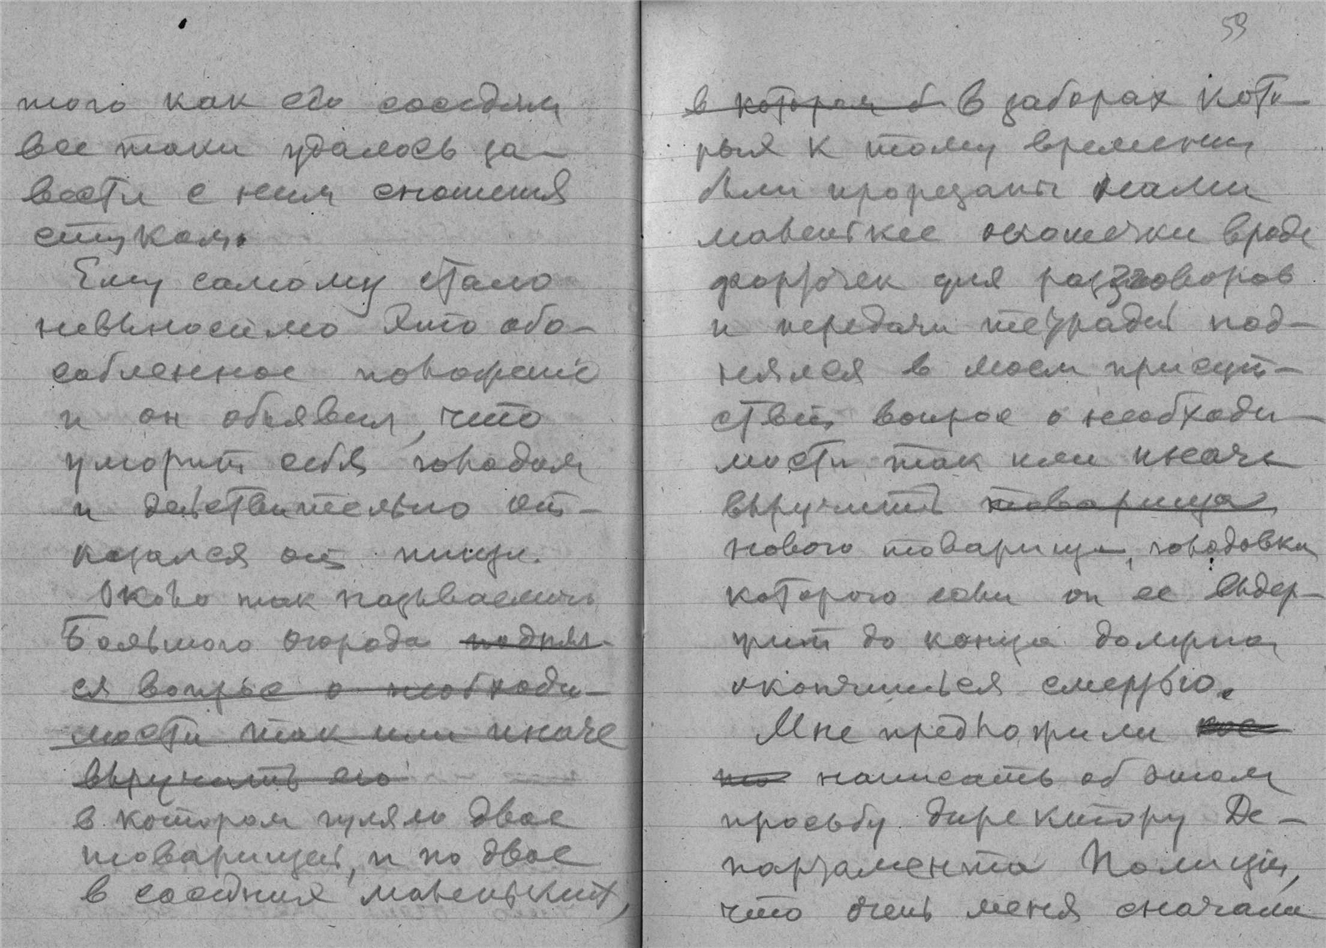 того как его соседям
все таки удалось за-
вести с ним сношения
стуком.
Ему самому стало
невыносимо это обо-
собленное положение
и он объявил, что
уморит себя голодом
и действительно от-
казался от пищи.
Около так называемого
Большого огорода поднял-
ся вопрос о необходи-
мости так или иначе
выручить его
в котором гуляло двое
товарищей, и по двое
в соседних маленьких,
59
в котором б в заборах кото-
рых к тому времени
были прорезаны нами
маленькие окошечки вроде
форточек для разговоров
и передачи тетрадей под-
нялся в моем присут-
ствии вопрос о необходи-
мости так или иначе
выручить товарища
нового товарища, голодовка
которого если он ее выдер-
жит до конца должна
окончиться смертью.
Мне предложили кое
что написать об этом
просьбу директору Де-
партамента Полиции,
что очень меня сначала